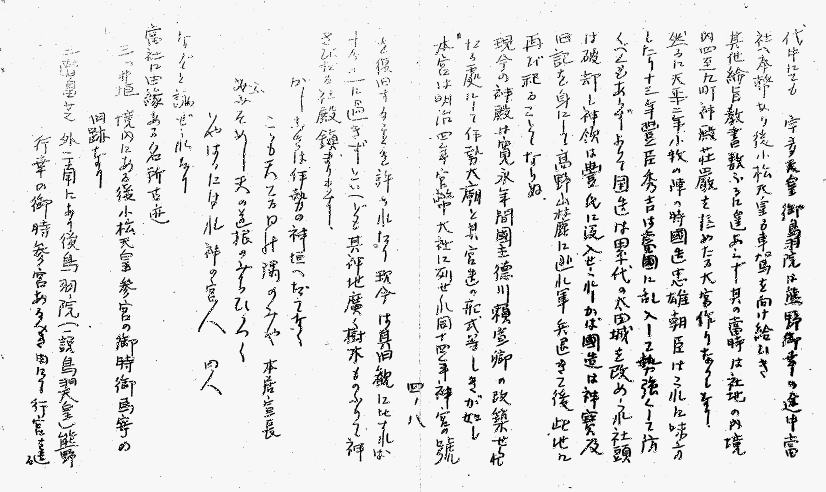 代中にも 宇多天皇 御鳥羽院は熊野御幸の途中当
社へ奉幣あり後小松天皇も車駕を向け給ひき
其他綸旨教書数ふるに遑あらず其の当時は社地の内境
内四至九町神殿荘厳を極めたる大宮作りなりしなり
然るに天正二年小牧の陣の時国造忠雄朝臣はこれに味方
したり十三年豊臣秀吉は当国に乱入して勢強くして防
ぐべくもあらず国造は累代の太田城を改めこれ社頭
は破却し神領は豊氏に没入せられしかば国造は神宝及
旧記を身にして高野山麓に逃れ軍兵退きて後此地に
再び祀ることゝはなりぬ
現今の神殿は寛永年間国主徳川頼宣卿の改築せられ
たる処にして伊勢大廟と其宮造の形式等しきが如し
本宮は明治四年官幣大社に列せられ同十四年神宮の号
四ノ八
を復旧することを許されたり 現今は其旧観に比すれば
十分の一に過ぎずといへども其神地広く樹木ものふりて神
さびたる社殿鎮まります
かしこきは伊勢の神垣へだてなく
こも天てる日の隈のみや 本居宣長
天の道根のみちひろく
神の宮人
なぞと詠ぜられたり
当社に由縁ある名所古迹
三つ井垣 境内にある後小松天皇参宮の御時御馬寄の
旧跡なり
二階皇芝 外二箇にあり後鳥羽院(一説鳥羽天皇)熊野
行幸の御時参宮あるべき由にて行宮を建